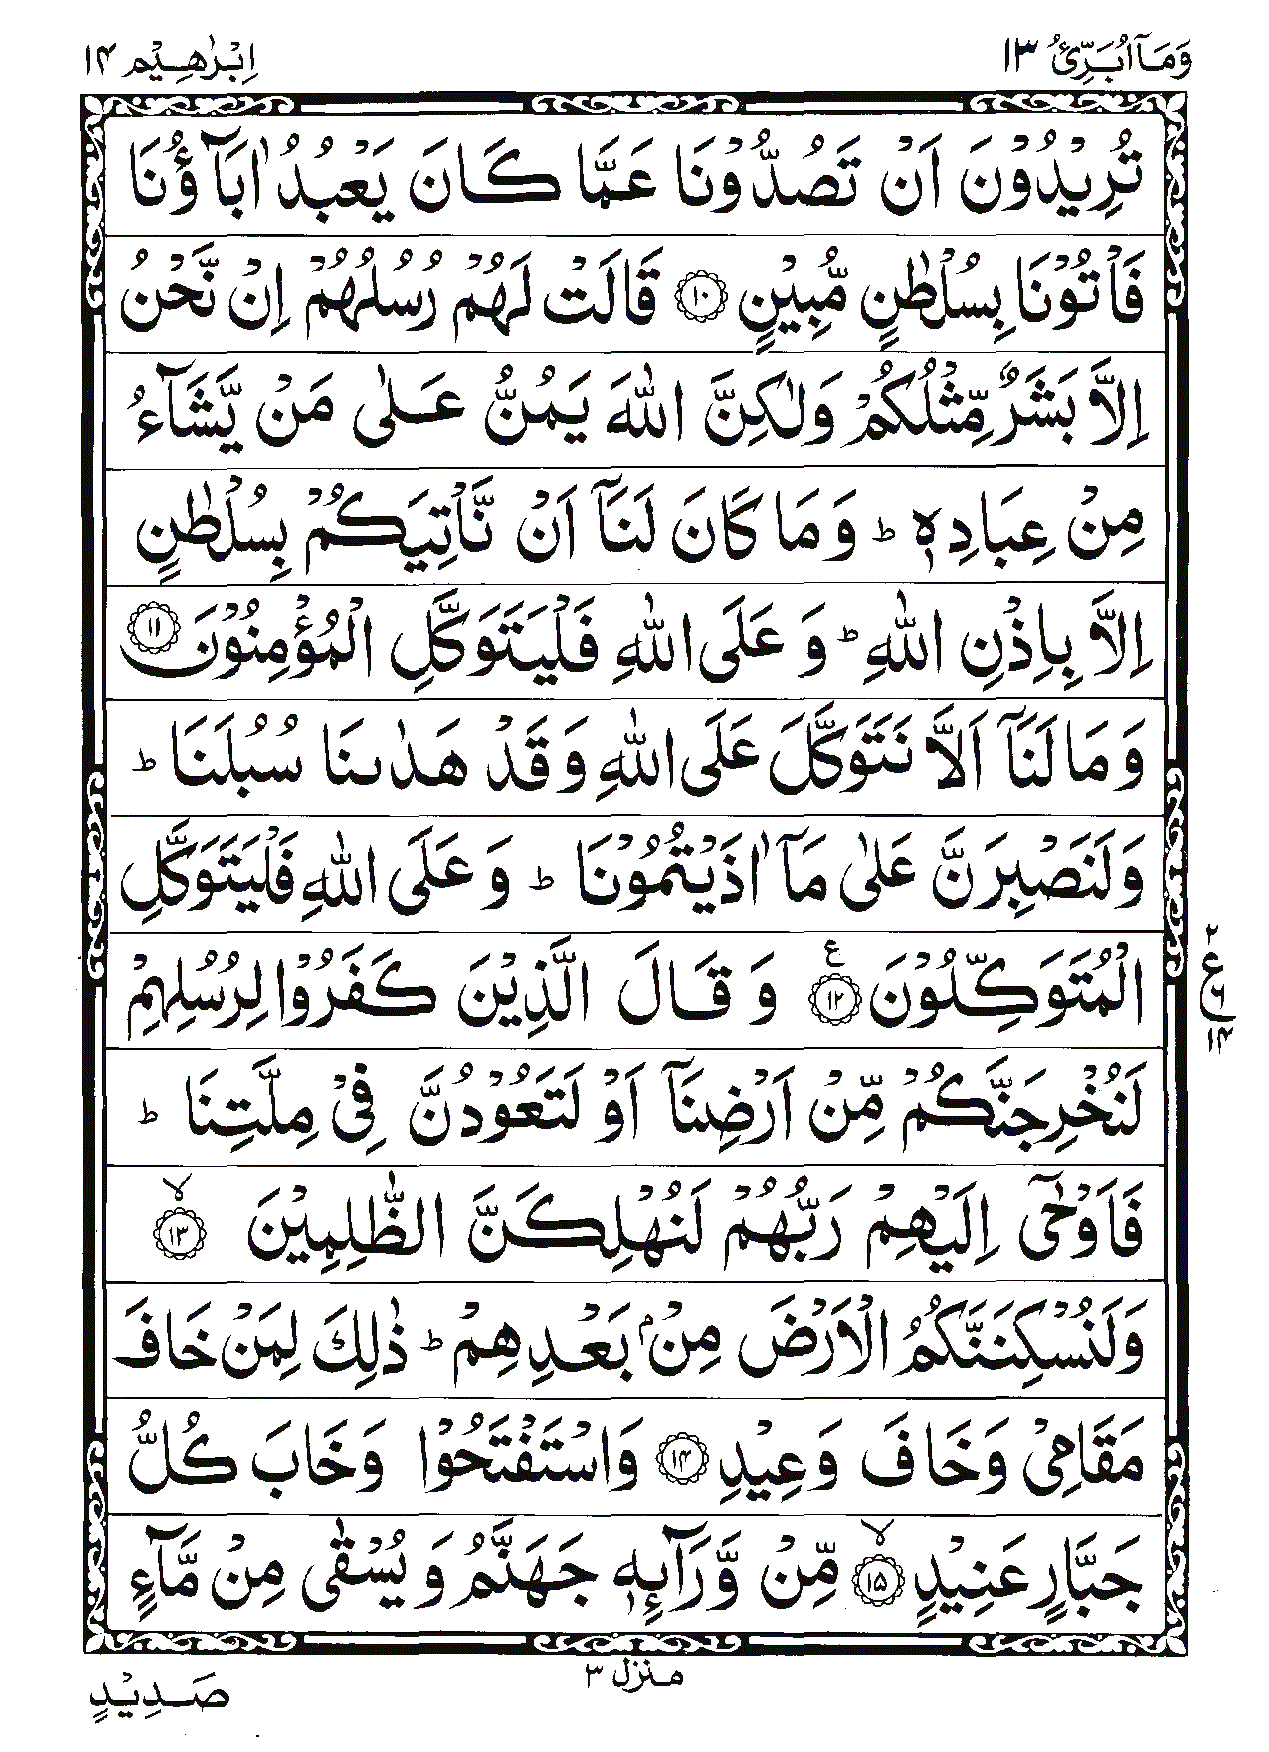 وَمَاۤ اُبَرِّئُ ١٣
اِبْرٰهِیْم ١٤
تُرِیْدُوْنَ اَنْ تَصُدُّوْنَا عَمَّا كَانَ یَعْبُدُ اٰبَآؤُنَا
فَاْتُوْنَا بِسُلْطٰنٍ مُّبِیْنٍ ﴿١٠﴾ قَالَتْ لَهُمْ رُسُلُهُمْ اِنْ نَّحْنُ
اِلَّا بَشَرٌ مِّثْلُكُمْ وَلٰكِنَّ اللّٰهَ یَمُنُّ عَلٰی مَنْ یَّشَآءُ
مِنْ عِبَادِهٖ ؕ وَ مَا كَانَ لَنَاۤ اَنْ نَّاْتِیَكُمْ بِسُلْطٰنٍ
اِلَّا بِاِذْنِ اللّٰهِ ؕ وَ عَلَی اللّٰهِ فَلْیَتَوَكَّلِ الْمُؤْمِنُوْنَ ﴿١١﴾
وَ مَا لَنَاۤ اَلَّا نَتَوَكَّلَ عَلَی اللّٰهِ وَ قَدْ هَدٰىنَا سُبُلَنَا ؕ
وَلَنَصْبِرَنَّ عَلٰی مَاۤ اٰذَیْتُمُوْنَا ؕ وَ عَلَی اللّٰهِ فَلْیَتَوَكَّلِ
الْمُتَوَكِّلُوْنَ ﴿١٢﴾ ع وَ قَالَ الَّذِیْنَ كَفَرُوْا لِرُسُلِهِمْ
٢
ع
٦
١٤
لَنُخْرِجَنَّكُمْ مِّنْ اَرْضِنَاۤ اَوْ لَتَعُوْدُنَّ فِیْ مِلَّتِنَا ؕ
فَاَوْحٰۤی اِلَیْهِمْ رَبُّهُمْ لَنُهْلِكَنَّ الظّٰلِمِیْنَ ﴿١٣﴾ ۙ
وَلَنُسْكِنَنَّكُمُ الْاَرْضَ مِنْۢ بَعْدِهِمْ ؕ ذٰلِكَ لِمَنْ خَافَ
مَقَامِیْ وَخَافَ وَعِیْدِ ﴿١٤﴾ وَاسْتَفْتَحُوْا وَخَابَ كُلُّ
جَبَّارٍ عَنِیْدٍ ﴿١٥﴾ ۙ مِّنْ وَّرَآىِٕهٖ جَهَنَّمُ وَ یُسْقٰی مِنْ مَّآءٍ
منزل ٣
صَدِیْدٍ